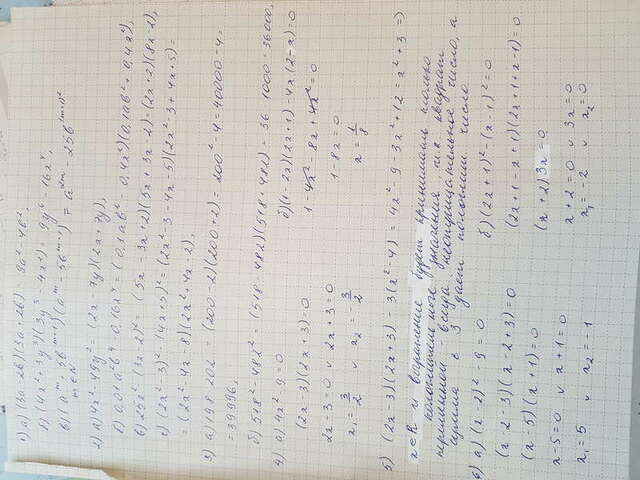 1) а) (3a-2b)(3a+2b) = 9a²-4b²;
б) (4x²+3y³)(3y³-4x²) = 9y⁶-16x⁴;
в) (aᵐ+5bᵐ⁺¹)(aᵐ-5bᵐ⁺¹) = a²ᵐ-25b⁽ᵐ⁺¹⁾²
m∈N
2) а) 4x²-49y² = (2x-7y)(2x+7y);
б) 0,01a²b⁴-0,16x⁴ = (0,1ab²-0,4x²)(0,1ab²+0,4x²);
в) 25x²-(3x-2)² = (5x-3x+2)(5x+3x-2)=(2x+2)(8x-2);
г) (2x²-3)²-(4x+5)²=(2x²-3-4x-5)(2x²-3+4x+5)=
= (2x²-4x-8)(2x²+4x+2);
3) а) 198·202 = (200-2)(200+2) = 200²-4=40000-4=
= 39996;
б) 518²-482² = (518-482)(518+482) = 36·1000=36000;
4) а) 4x²-9=0
(2x-3)(2x+3)=0
2x-3=0 v 2x+3=0
x₁=3/2 v x₂=-3/2
б) (1-2x)(2x+1)-4x(2-x)=0
1-4x²-8x+4x²=0
1-8x=0
x=1/8
5) (2x-3)(2x+3)-3(x²-4) = 4x²-9-3x²+12=x²+3 =>
x∈R и выражение будет принимать только
положительные значения, т.к. квадрат
переменной - всегда неотрицательное число, а
сумма с 3 дает положит. число.
6) а) (x-2)²-9=0
(x-2-3)(x-2+3)=0
(x-5)(x+1)=0
x-5=0 v x+1=0
x₁=5 v x₂=-1
б) (2x+1)²-(x-1)²=0
(2x+1-x+1)(2x+1+x-1)=0
(x+2)3x=0
x+2=0 v 3x=0
x₁=-2 v x₂=0